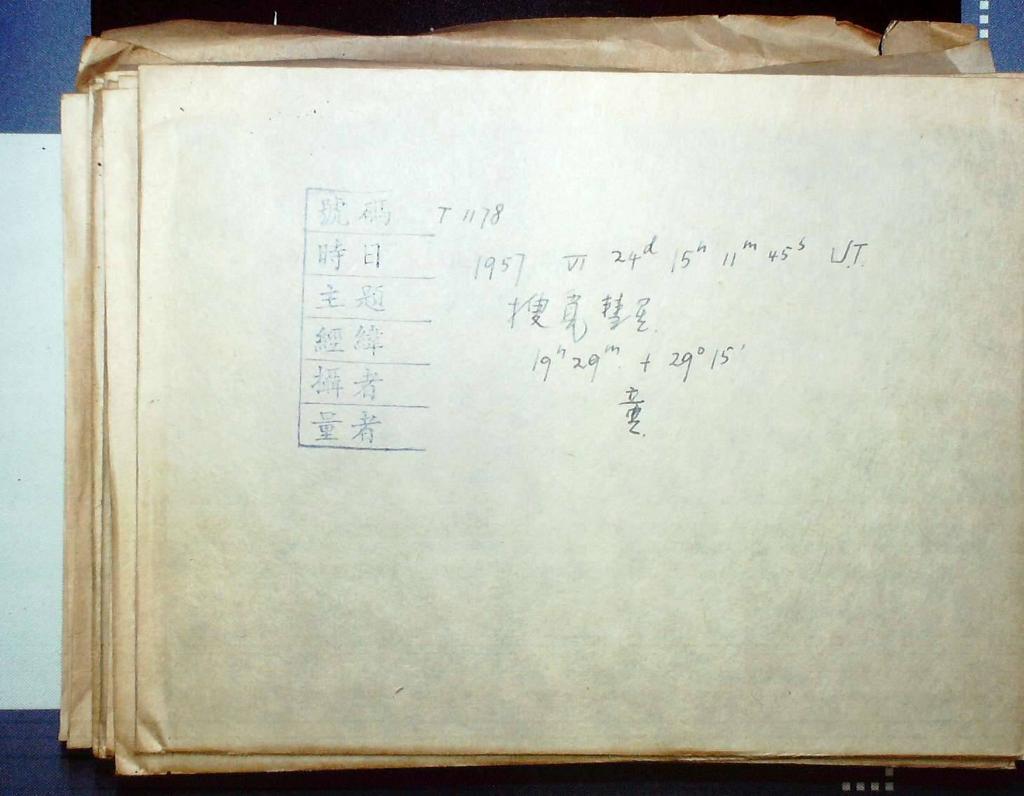 號碼 T 1178
時日 1957 VI 24d 15h 11m 45s U.T.
主題 搜覓彗星
經緯 19h 29m + 29° 15'
攝者
量者